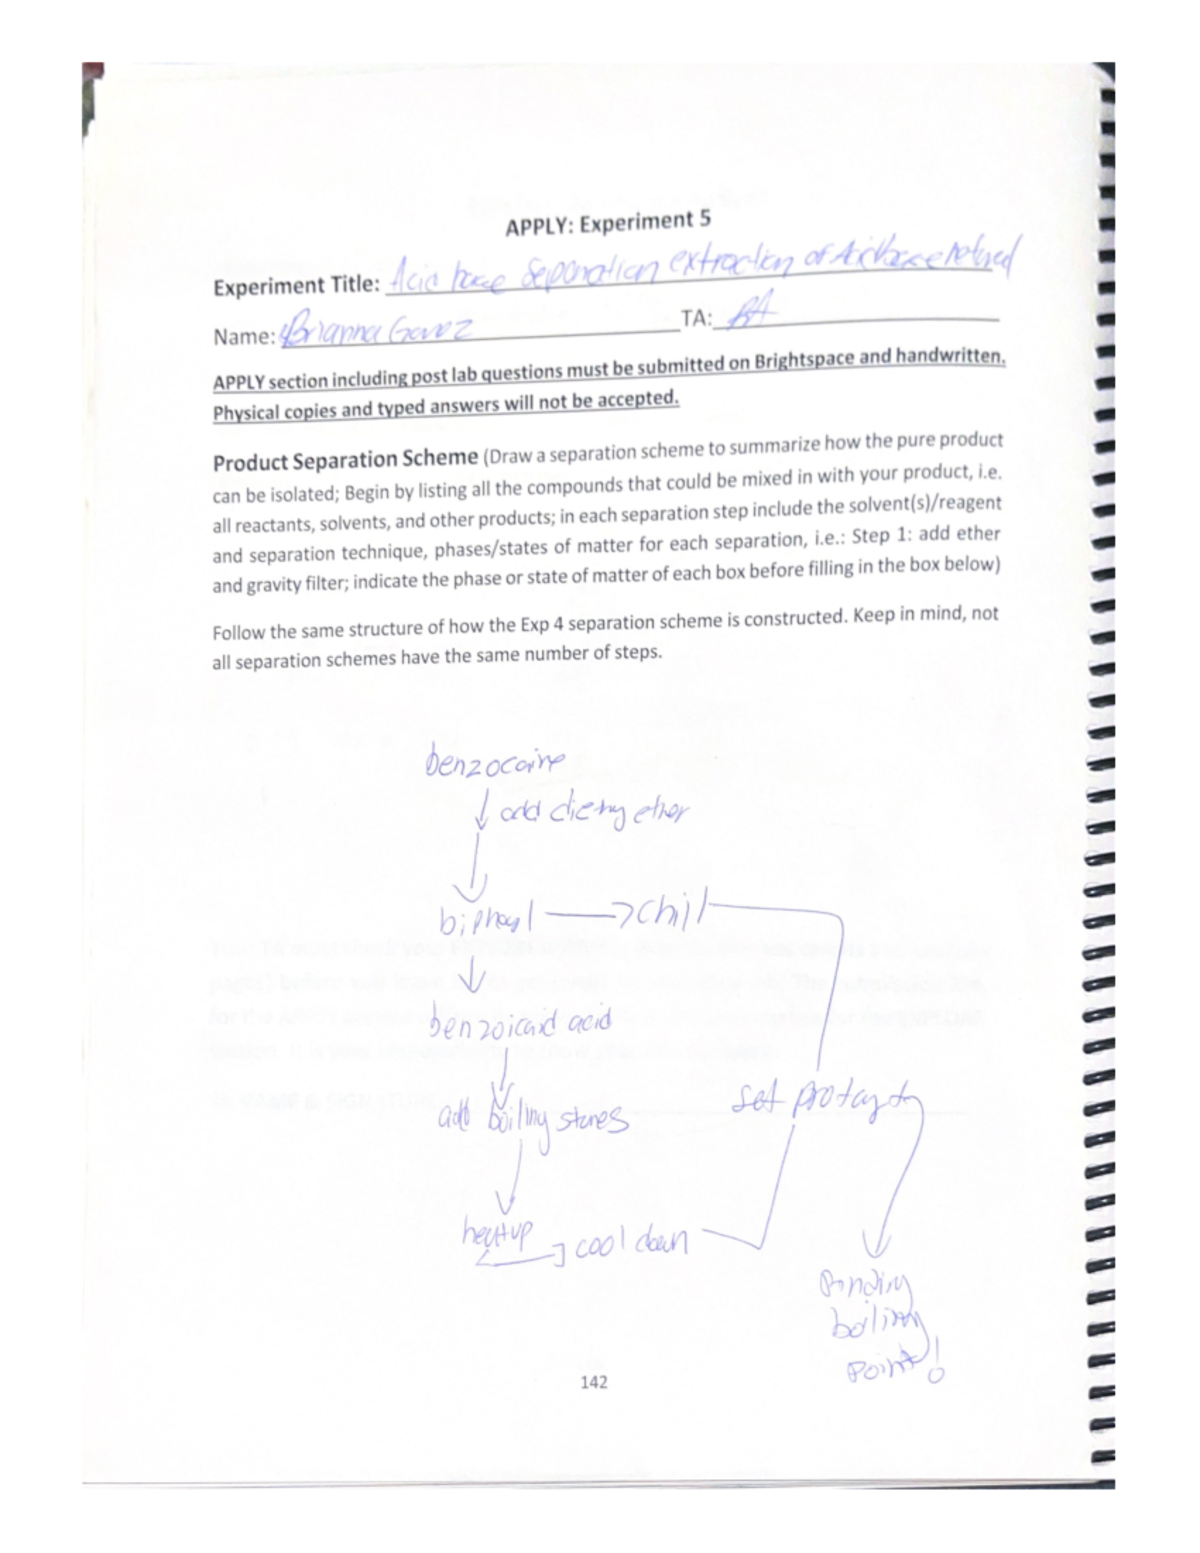 APPLY: Experiment 5
Experiment Title: Acid base Separation extraction of
Name: Brianna TA: RA
APPLY section including post lab questions must be submitted on Brightspace and handwritten.
Physical copies and typed answers will not be accepted.
Product Separation Scheme (Draw a separation scheme to summarize how the pure product
can be isolated; Begin by listing all the compounds that could be mixed in with your product, i.e.
all reactants, solvents, and other products; in each separation step include the solvent(s)/reagent
and separation technique, phases/states of matter for each separation, i.e.: Step 1: add ether
and gravity filter; indicate the phase or state of matter of each box before filling in the box below)
Follow the same structure of how the Exp 4 separation scheme is constructed. Keep in mind, not
all separation schemes have the same number of steps.
benzocaine
add ether
chill
acid
set
add boiling stones
heat up
cool down
boiling
point!
142